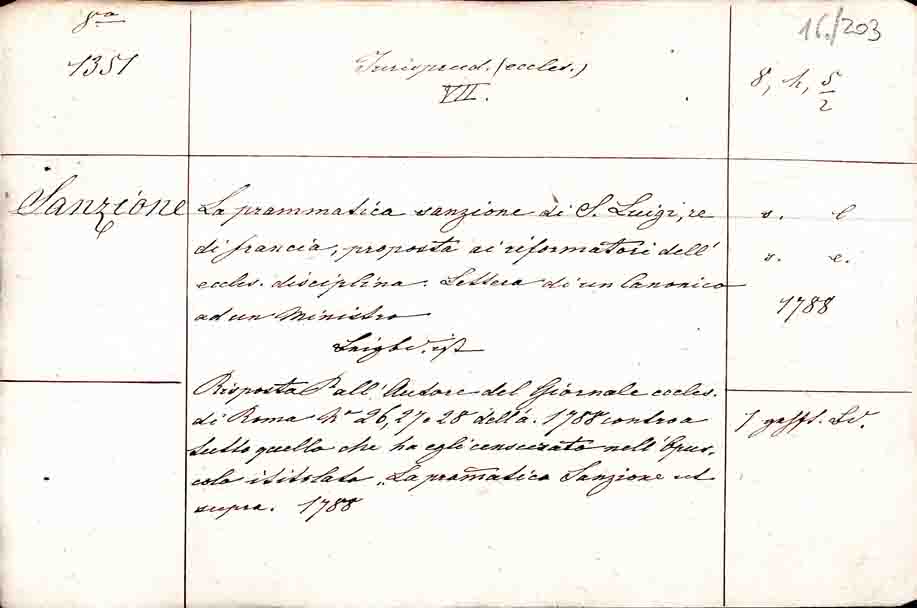 8va
1351
Jurisprud. (eccles.)
VII.
16./203
8, h, 5/2
Sanzione
La prammatica sanzione di S. Luigi, re
di francia, proposta ai riformatori dell'
eccles. disciplina. Lettera di un Canonico
ad un Ministro
s. l
s. e.
1788
Risposta all' Autore del Giornale eccles.
di Roma Nr 26, 27 e 28 dell' a. 1788 contro a
tutto quello che ha egli censurato nell' Opus,
colo ititolato „La pramatica Sanzione ut
supra. 1788
1